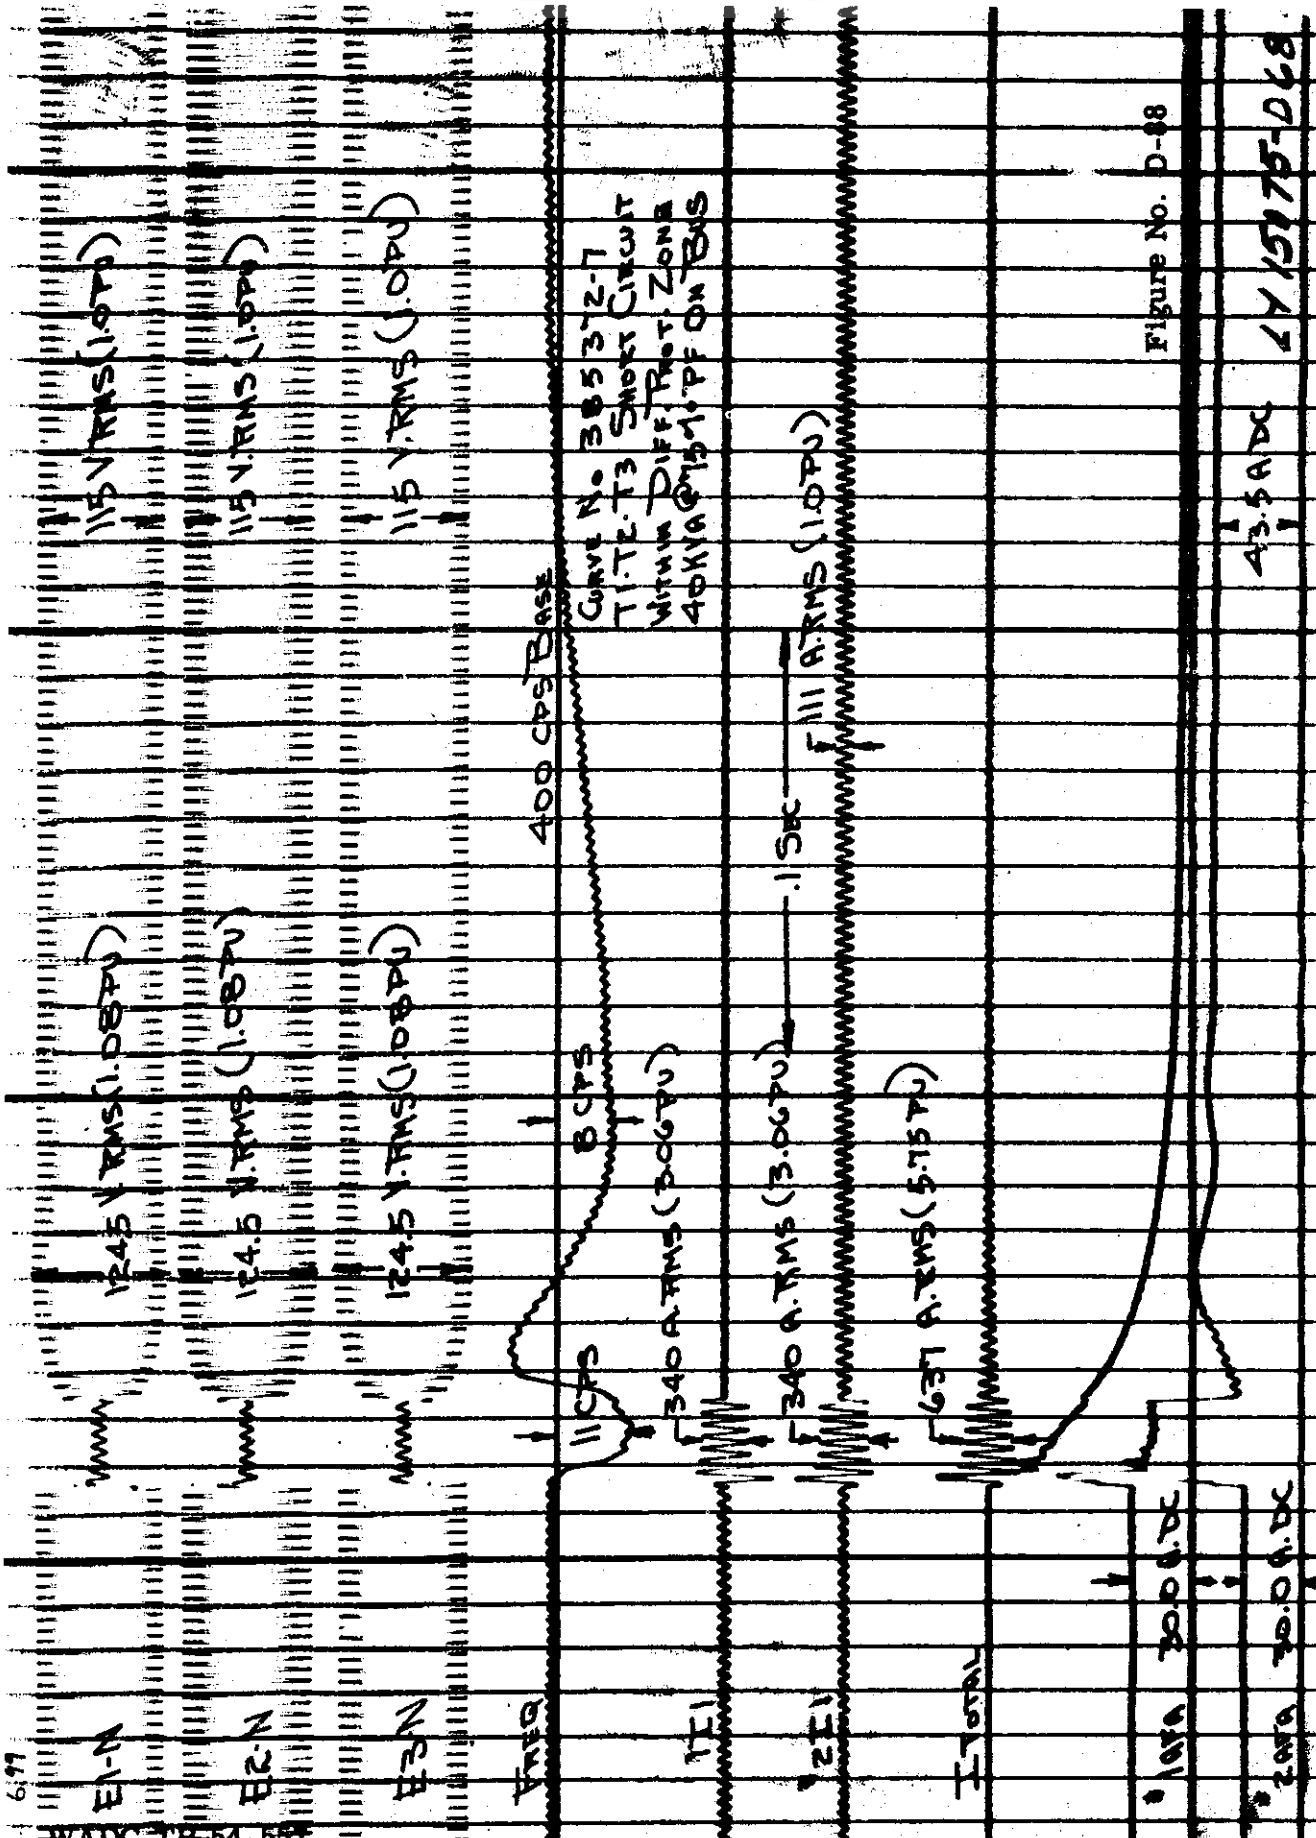 6.99
E1-N
124.5 V. RMS (1.08 PU)
115 V. RMS (1.0 PU)
E2-N
124.5 V. RMS (1.08 PU)
115 V. RMS (1.0 PU)
E3-N
124.5 V. RMS (1.08 PU)
115 V. RMS (1.0 PU)
FREQ
11 CPS
8 CPS
400 CPS BASE
CURVE No. 385372-7
T1-T2-T3 SHORT CIRCUIT
WITHIN DIFF. PROT. ZONE
40KVA @ 75% PF ON BUS
1I1
340 A. RMS (3.06 PU)
2I1
340 A. RMS (3.06 PU)
.1 SEC
111 A. RMS (1.0 PU)
I TOTAL
637 A. RMS (5.75 PU)
Figure No. D-88
1AFA 30.0 A. DC
2AFA 30.0 A. DC
43.5 A DC